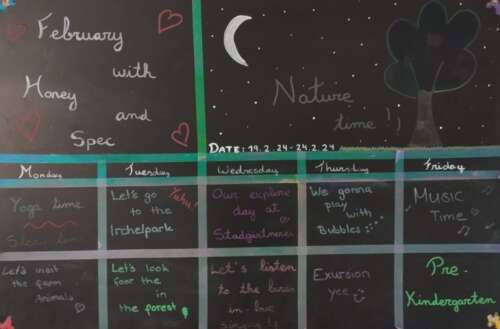 February
with
Honey
and
Spec
Nature
time!!
DATE: 19.2.24-24.2.24
Monday Tuesday Wednesday Thursday Friday
Yoga time
Let's go Yuhu!
to the
Irchelpark
Our explore
day at
We gonna
play
with
Bubbles
Music
Time
Let's visit
the farm
Animals
Let's look
foor the
in
the forest
Let's listen
to the birds
in-love
Exursion
yee
Pre-
Kindergarten